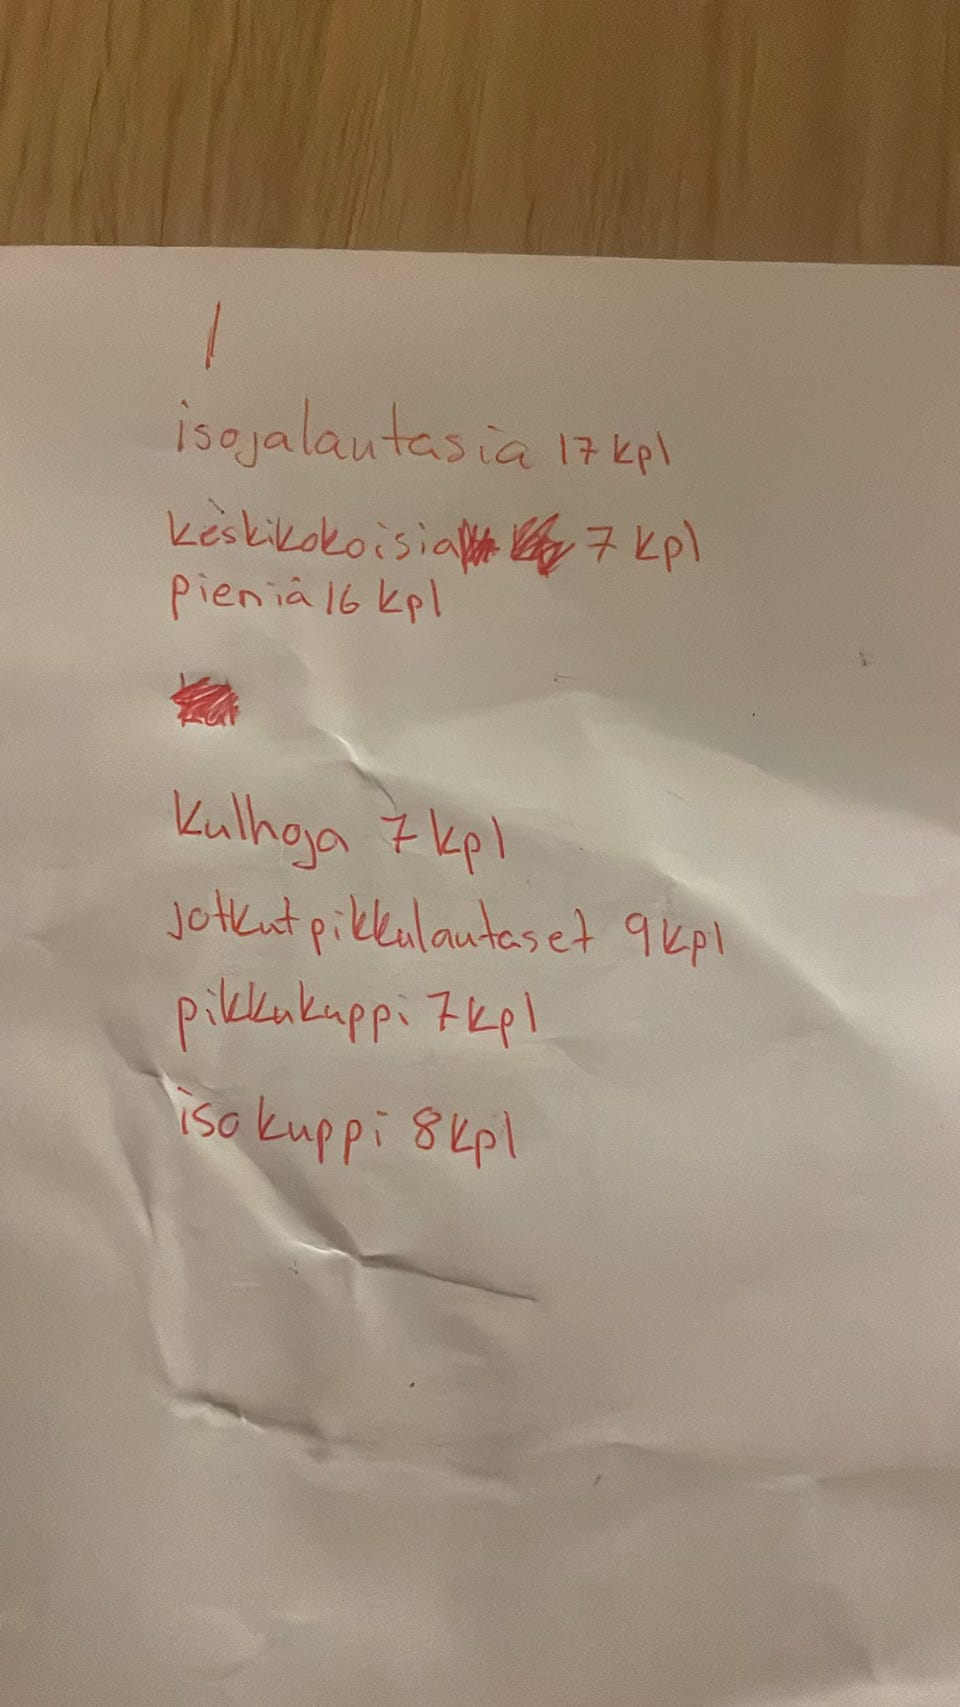 isojalautasia 17 kpl
keskikokoisia 7 kpl
pieniä 16 kpl
kulhoja 7 kpl
jotkut pikkulautaset 9 kpl
pikkukuppi 7 kpl
iso kuppi 8 kpl